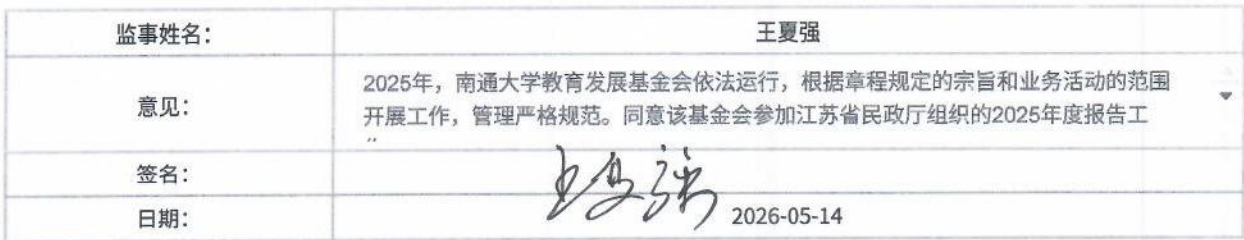 监事姓名： 王夏强
意见： 2025年，南通大学教育发展基金会依法运行，根据章程规定的宗旨和业务活动的范围
开展工作，管理严格规范。同意该基金会参加江苏省民政厅组织的2025年度报告工
签名： 王夏强
日期： 2026-05-14